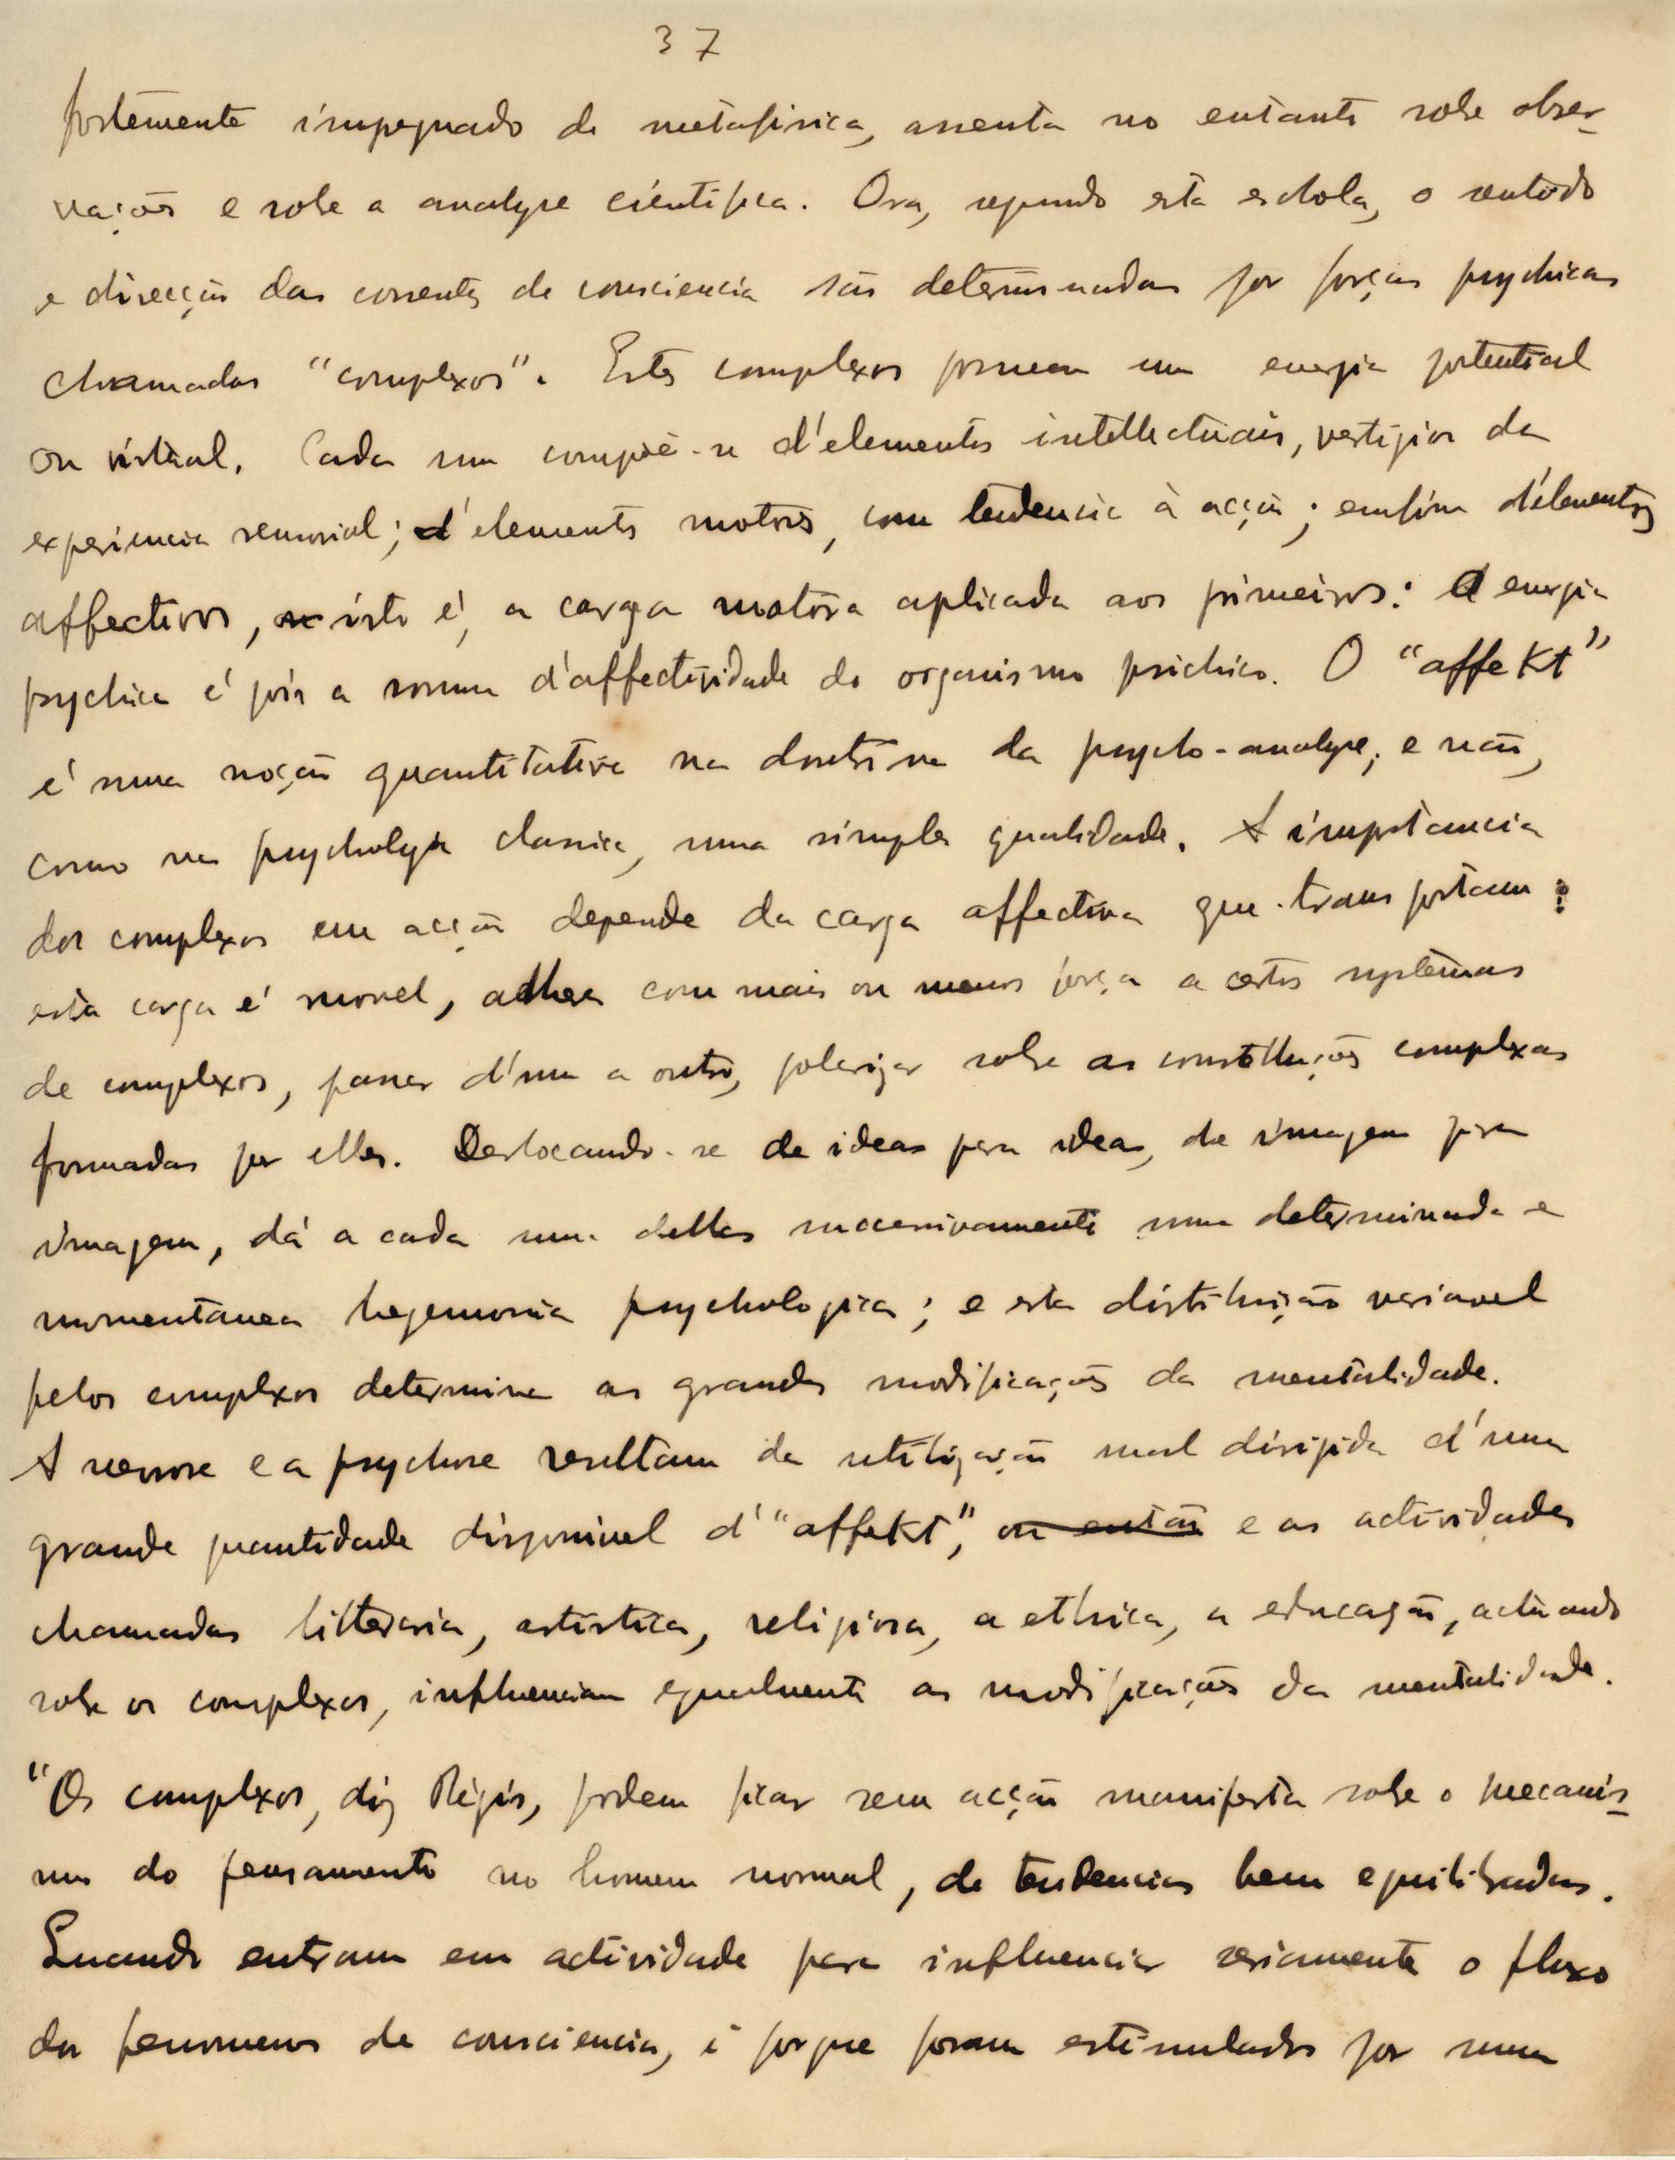 37
fortemente impregnado de metafisica, assenta no entanto sobre obser-
vações e sobre a analyse cientifica. Ora, segundo esta eschola, o sentido
e direcção das correntes de consciencia são determinadas por forças psychicas
chamadas "complexos". Estes complexos formam um energia potential
ou virtual. Cada um compõe-se d'elementos intellectuais, vestigios da
experiencia sensorial; d'elementos motores, com tendencia à acção; emfim d'elementos
affectivos, isto é, a carga motora aplicada aos primeiros: a energia
psychica é pois a somma d'affectividade do organismo psichico. O "affekt"
é uma noção quantitativa na doutrina da psycho-analyse, e não,
como na psychologia classica, uma simples qualidade. A importancia
dos complexos em acção depende da carga affectiva que transportam:
esta carga é movel, adhere com mais ou menos força a certos systemas
de complexos, passar d'um a outro, polarizar sobre as constituições complexas
formadas por elles. Deslocando-se de ideas para ideas, de imagem para
imagem, dá a cada uma dellas successivamente uma determinada e
momentanea hegemonia psychologica; e esta distribuição variavel
pelos complexos determina as grandes modificações da mentalidade.
A nevrose e a psychose resultam da utilização mal dirigida d'uma
grande quantidade disponivel d'"affekt", ou então e as actividades
chamadas litteraria, artistica, religiosa, a ethica, a educação, actuando
sobre os complexos, influenciam egualmente as modificações da mentalidade.
"Os complexos, diz Régis, podem ficar sem acção manifesta sobre o mecanis-
mo do pensamento no homem normal, de tendencias bem equilibradas.
Quando entram em actividade para influenciar seriamente o fluxo
dos fenomenos de consciencia, é porque foram estimulados por uma